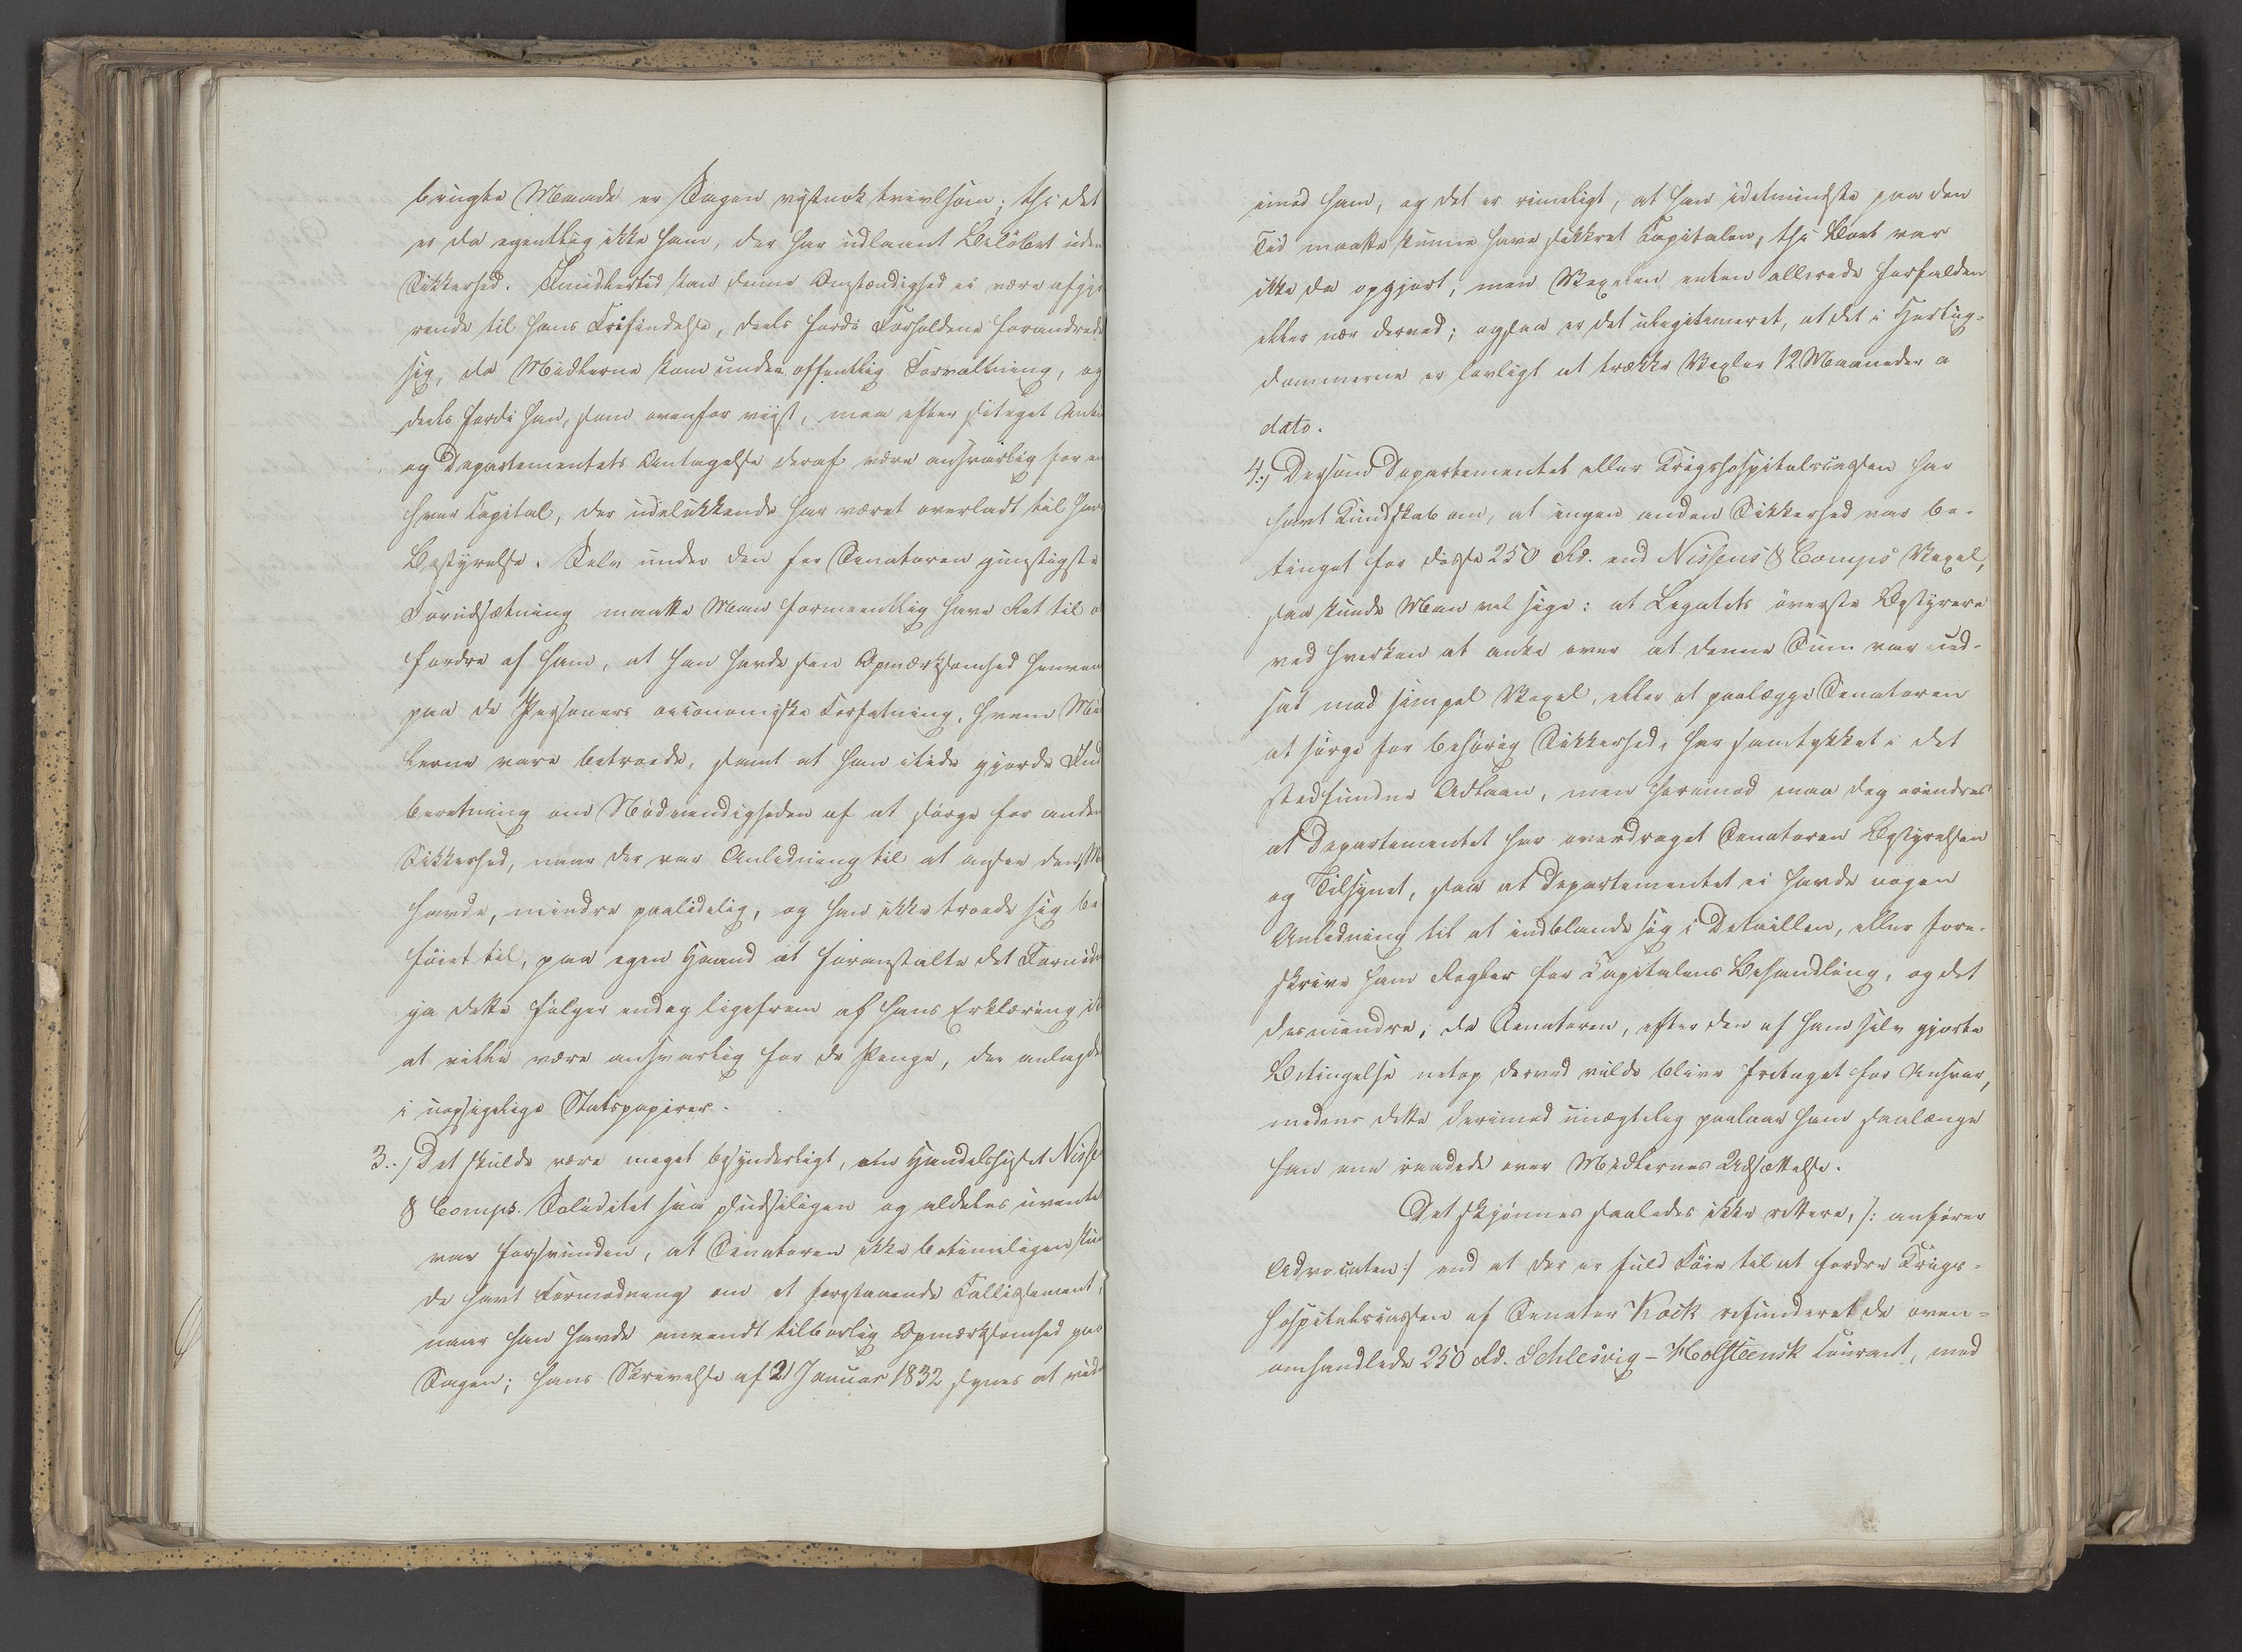 brugte Maade er Sagen vistnok tvivlsom; thi det
er da egentlig ikke ham, der har udlaant Beløbet uden
Sikkerhed. Imidlertid kan denne Omstændighed ei være afgjø
rende til hans Frifindelse, deels fordi Forholdene forandrede
sig, da Midlerne kom under offentlig Forvaltning, og
deels fordi han, som ovenfor viist, maa efter sit eget
og Departementets Antagelse deraf være ansvarlig for en
hver Kapital, der udelukkende har været overladt til hans
Bestyrelse. Selv under den for Senatoren gunstigste
Forudsætning maatte Man formeentlig have Ret til
fordre af ham, at han havde sin Opmærksomhed
paa de Personers oeconomiske Forfatning, hvem Mid
lerne vare betroede, samt at han itide gjorde Ind
beretning om Nödvendigheden af at sörge for anden
Sikkerhed, naar der var Anledning til at ansee den,
havde, mindre paalidelig, og han ikke troede sig be
föiet til, paa egen Haand at foranstalte det
ja dette fölger endog ligefrem af hans Erklæring
at ville være ansvarlig for de Penge, der anlagdes
i uopsigelige Statspapirer.
3.,) Det skulde være meget besynderligt, om Handelshuset Nisse
& Comps. Soliditet saa pludseligen og aldeles uvente
var forsvunden, at Senatoren ikke betimeligen kun
de havt Formodning om et forestaaende Fallissement,
naar han havde anvendt tilbørlig Opmærksomhed paa
Sagen; hans Skrivelse af 21 Januar 1832 synes at vid
imod ham, og det er rimeligt, at han idetmindste paa den
Tid maatte kunne have sikkret Kapitalen, thi Boet var
ikke da opgjort, men Vexelen enten allerede forfalden
eller nær derved; ogsaa er det ulegitimeret, at det i Hertug-
dommerne er lovligt at trække Vexler 12 Maaneder a
dato.
4.,) Dersom Departementet eller Krigshospitalscassen har
havt Kundskab om, at ingen anden Sikkerhed var be-
tinget for disse 250 Rd. end Nissens & Comps Vexel,
saa kunde Man vel sige: at Legatets överste Bestyrere
ved hverken at anke over at denne Sum var ud-
sat mod simpel Vexel, eller at paalægge Senatoren
at sörge for behörig Sikkerhed, har samtykket i det
stedfundne Udlaan, men herimod maa dog erindres
at Departementet har overdraget Senatoren Bestyrelsen
og Tilsynet, saa at Departementet ei havde nogen
Anledning til at indblande sig i Detaillen, eller fore-
skrive ham Regler for Capitalens Behandling, og det
desmindre, da Senatoren, efter den af ham selv gjorte
Betingelse netop derved vilde blive fritaget for Ansvar,
medens dette derimod unægtelig paalaae ham saalænge
han ene raadede over Midlernes Udsættelse.
Det skjönnes saaledes ikke rettere, /: anförer
Advocaten :/ end at der er fuld Föie til at fordre Krigs-
hospitalscassen af Senator Kock refunderet de oven-
omhandlede 250 Rd. Schlesvig-Holsteensk Courant, med